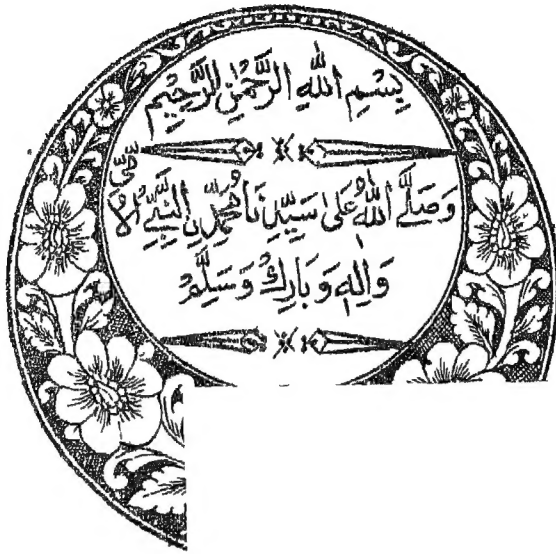 بِسْمِ اللهِ الرَّحْمٰنِ الرَّحِيْمِ
وَصَلَّے اللهُ عَلٰى سَيِّدِنَا مُحَمَّدِنِ النَّبِيِّ الْاُمِّيِّ
وَاٰلِهٖ وَبَارِكْ وَسَلِّمْ